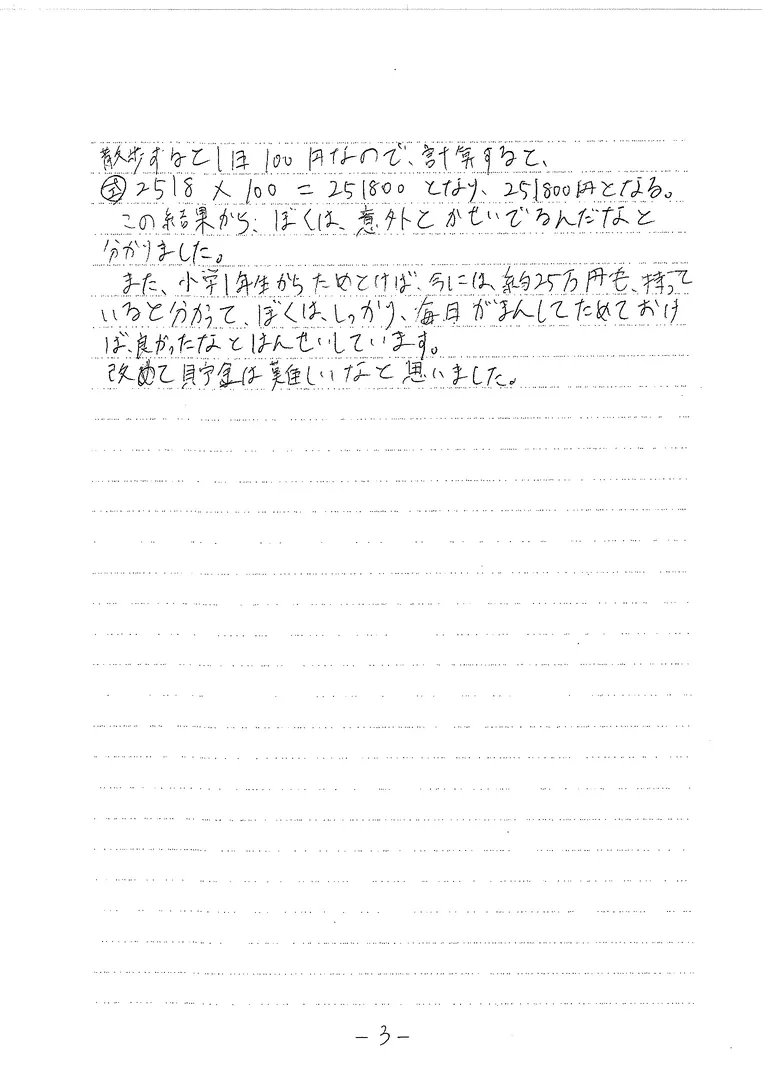 散歩すると1日100円なので、計算すると、
式 2518×100=251800となり、251800円となる。
この結果から、ぼくは、意外とかせいでるんだなと
分かりました。
また、小学1年生からためとけば、今には、約25万円も、持って
いると分かって、ぼくは、しっかり、毎日がまんしてためておけ
ば、良かったなとはんせいしています。
改めて貯金は難しいなと思いました。
-3-